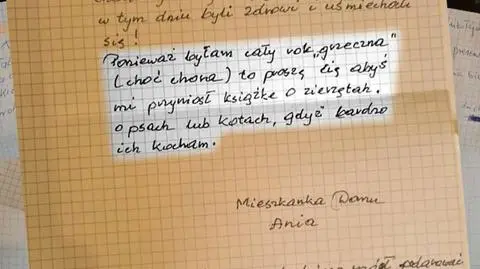 w tym dniu byli zdrowi i uśmiechali
się!
Ponieważ byłam cały rok „grzeczna”
(choć chora) to proszę Cię abyś
mi przyniósł książkę o zierzętah.
o psach lub kotach, gdyż bardzo
ich kocham.
Mieszkanka Domu
Ania